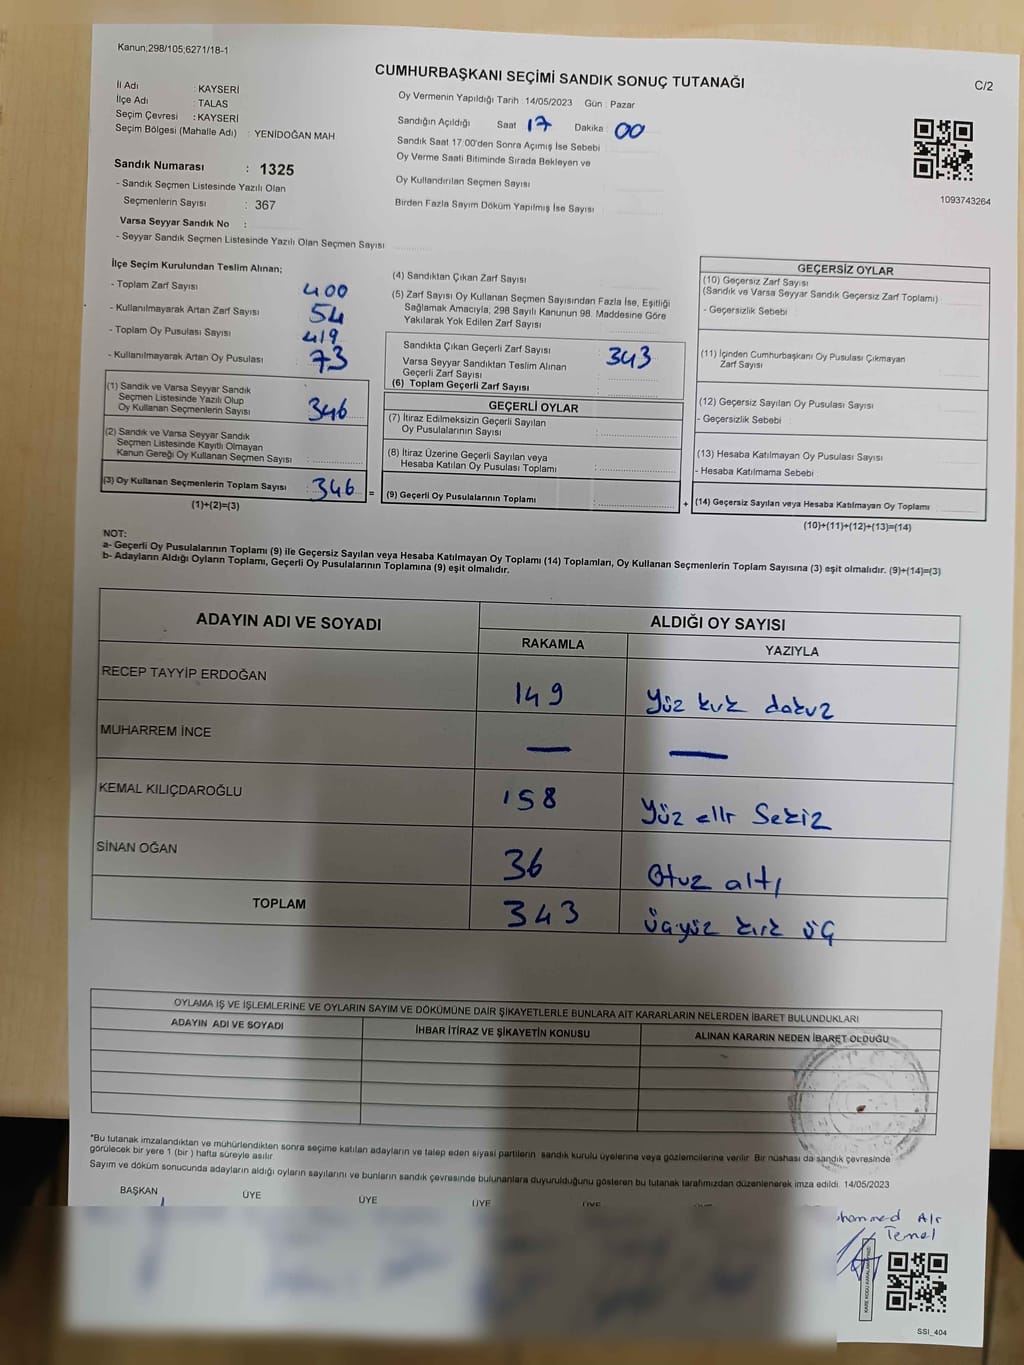 Kanun;298/105;6271/18-1
CUMHURBAŞKANI SEÇİMİ SANDIK SONUÇ TUTANAĞI
C/2
İl Adı : KAYSERİ
İlçe Adı : TALAS
Seçim Çevresi : KAYSERİ
Seçim Bölgesi (Mahalle Adı) : YENİDOĞAN MAH
Sandık Numarası : 1325
- Sandık Seçmen Listesinde Yazılı Olan
Seçmenlerin Sayısı : 367
Varsa Seyyar Sandık No :
- Seyyar Sandık Seçmen Listesinde Yazılı Olan Seçmen Sayısı
Oy Vermenin Yapıldığı Tarih : 14/05/2023 Gün : Pazar
Sandığın Açıldığı Saat 17 Dakika 00
Sandık Saat 17:00'den Sonra Açımış İse Sebebi
Oy Verme Saati Bitiminde Sırada Bekleyen ve
Oy Kullandırılan Seçmen Sayısı
Birden Fazla Sayım Döküm Yapılmış İse Sayısı
1093743264
İlçe Seçim Kurulundan Teslim Alınan;
- Toplam Zarf Sayısı 400
- Kullanılmayarak Artan Zarf Sayısı 54
- Toplam Oy Pusulası Sayısı 419
- Kullanılmayarak Artan Oy Pusulası 73
(1) Sandık ve Varsa Seyyar Sandık
Seçmen Listesinde Yazılı Olup
Oy Kullanan Seçmenlerin Sayısı 346
(2) Sandık ve Varsa Seyyar Sandık
Seçmen Listesinde Kayıtlı Olmayan
Kanun Gereği Oy Kullanan Seçmen Sayısı :
(3) Oy Kullanan Seçmenlerin Toplam Sayısı : 346 =
(1)+(2)=(3)
(4) Sandıktan Çıkan Zarf Sayısı
(5) Zarf Sayısı Oy Kullanan Seçmen Sayısından Fazla İse, Eşitliği
Sağlamak Amacıyla, 298 Sayılı Kanunun 98. Maddesine Göre
Yakılarak Yok Edilen Zarf Sayısı
Sandıkta Çıkan Geçerli Zarf Sayısı : 343
Varsa Seyyar Sandıktan Teslim Alınan
Geçerli Zarf Sayısı
(6) Toplam Geçerli Zarf Sayısı
GEÇERLİ OYLAR
(7) İtiraz Edilmeksizin Geçerli Sayılan
Oy Pusulalarının Sayısı :
(8) İtiraz Üzerine Geçerli Sayılan veya
Hesaba Katılan Oy Pusulası Toplamı :
(9) Geçerli Oy Pusulalarının Toplamı : +
GEÇERSİZ OYLAR
(10) Geçersiz Zarf Sayısı
(Sandık ve Varsa Seyyar Sandık Geçersiz Zarf Toplamı) :
- Geçersizlik Sebebi :
(11) İçinden Cumhurbaşkanı Oy Pusulası Çıkmayan
Zarf Sayısı :
(12) Geçersiz Sayılan Oy Pusulası Sayısı :
- Geçersizlik Sebebi :
(13) Hesaba Katılmayan Oy Pusulası Sayısı :
- Hesaba Katılmama Sebebi :
(14) Geçersiz Sayılan veya Hesaba Katılmayan Oy Toplamı :
(10)+(11)+(12)+(13)=(14)
NOT:
a- Geçerli Oy Pusulalarının Toplamı (9) ile Geçersiz Sayılan veya Hesaba Katılmayan Oy Toplamı (14) Toplamları, Oy Kullanan Seçmenlerin Toplam Sayısına (3) eşit olmalıdır. (9)+(14)=(3)
b- Adayların Aldığı Oyların Toplamı, Geçerli Oy Pusulalarının Toplamına (9) eşit olmalıdır.
ADAYIN ADI VE SOYADI ALDIĞI OY SAYISI
RAKAMLA YAZIYLA
RECEP TAYYİP ERDOĞAN 149 Yüz kırk dokuz
MUHARREM İNCE — —
KEMAL KILIÇDAROĞLU 158 Yüz elli Sekiz
SİNAN OĞAN 36 Otuz altı
TOPLAM 343 üçyüz kırk üç
OYLAMA İŞ VE İŞLEMLERİNE VE OYLARIN SAYIM VE DÖKÜMÜNE DAİR ŞİKAYETLERLE BUNLARA AİT KARARLARIN NELERDEN İBARET BULUNDUKLARI
ADAYIN ADI VE SOYADI İHBAR İTİRAZ VE ŞİKAYETİN KONUSU ALINAN KARARIN NEDEN İBARET OLDUĞU
*Bu tutanak imzalandıktan ve mühürlendikten sonra seçime katılan adayların ve talep eden siyasi partilerin sandık kurulu üyelerine veya gözlemcilerine verilir. Bir nüshası da sandık çevresinde
görülecek bir yere 1 (bir) hafta süreyle asılır.
Sayım ve döküm sonucunda adayların aldığı oyların sayılarını ve bunların sandık çevresinde bulunanlara duyurulduğunu gösteren bu tutanak tarafımızdan düzenlenerek imza edildi. 14/05/2023
BAŞKAN ÜYE ÜYE ÜYE ÜYE
hammed Ali
Temel
SSI_404